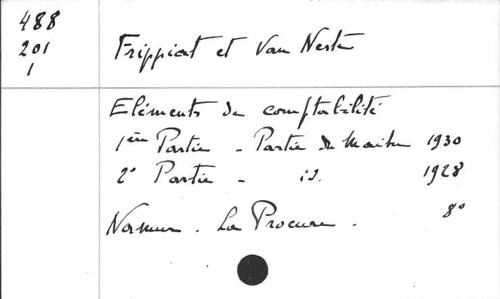 488
201
1
Frippiat et Van Neste
Eléments de comptabilité
1ère Partie - Partie du Maitre 1930
2e Partie - id. 1928
8°
Namur. La Procure.